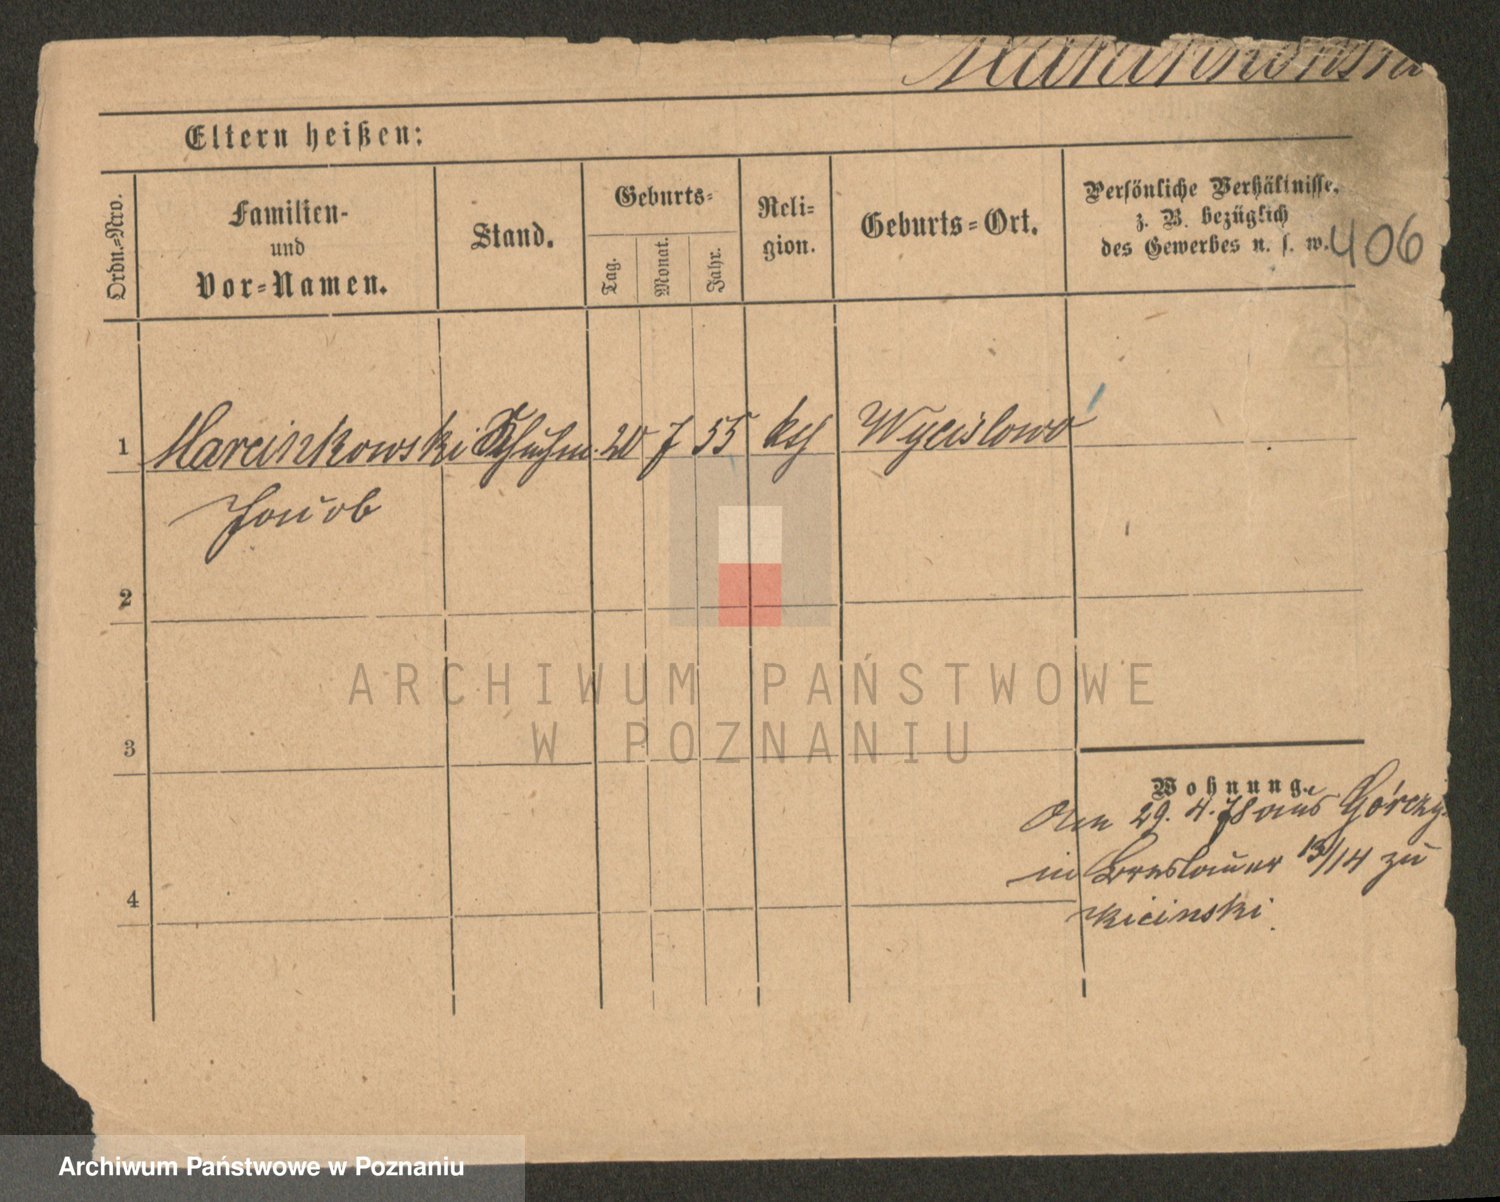 Marcinkowski
Eltern heißen:
Ordn.-Nro.
Familien-
und
Vor-Namen.
Stand.
Geburts-
Tag.
Monat.
Jahr.
Reli-
gion.
Geburts-Ort.
Persönliche Verhältnisse,
z. B. bezüglich
des Gewerbes u. s. w.
406
1 Marcinkowski Schuhm. 20 7 55 kth Wycislowo
Jacob
2
3
4
Wohnung.
Am 29. 4. 78 aus Górczyn
in Breslauer 13/14 zu
Kicinski.
ARCHIWUM PAŃSTWOWE
W POZNANIU
Archiwum Państwowe w Poznaniu